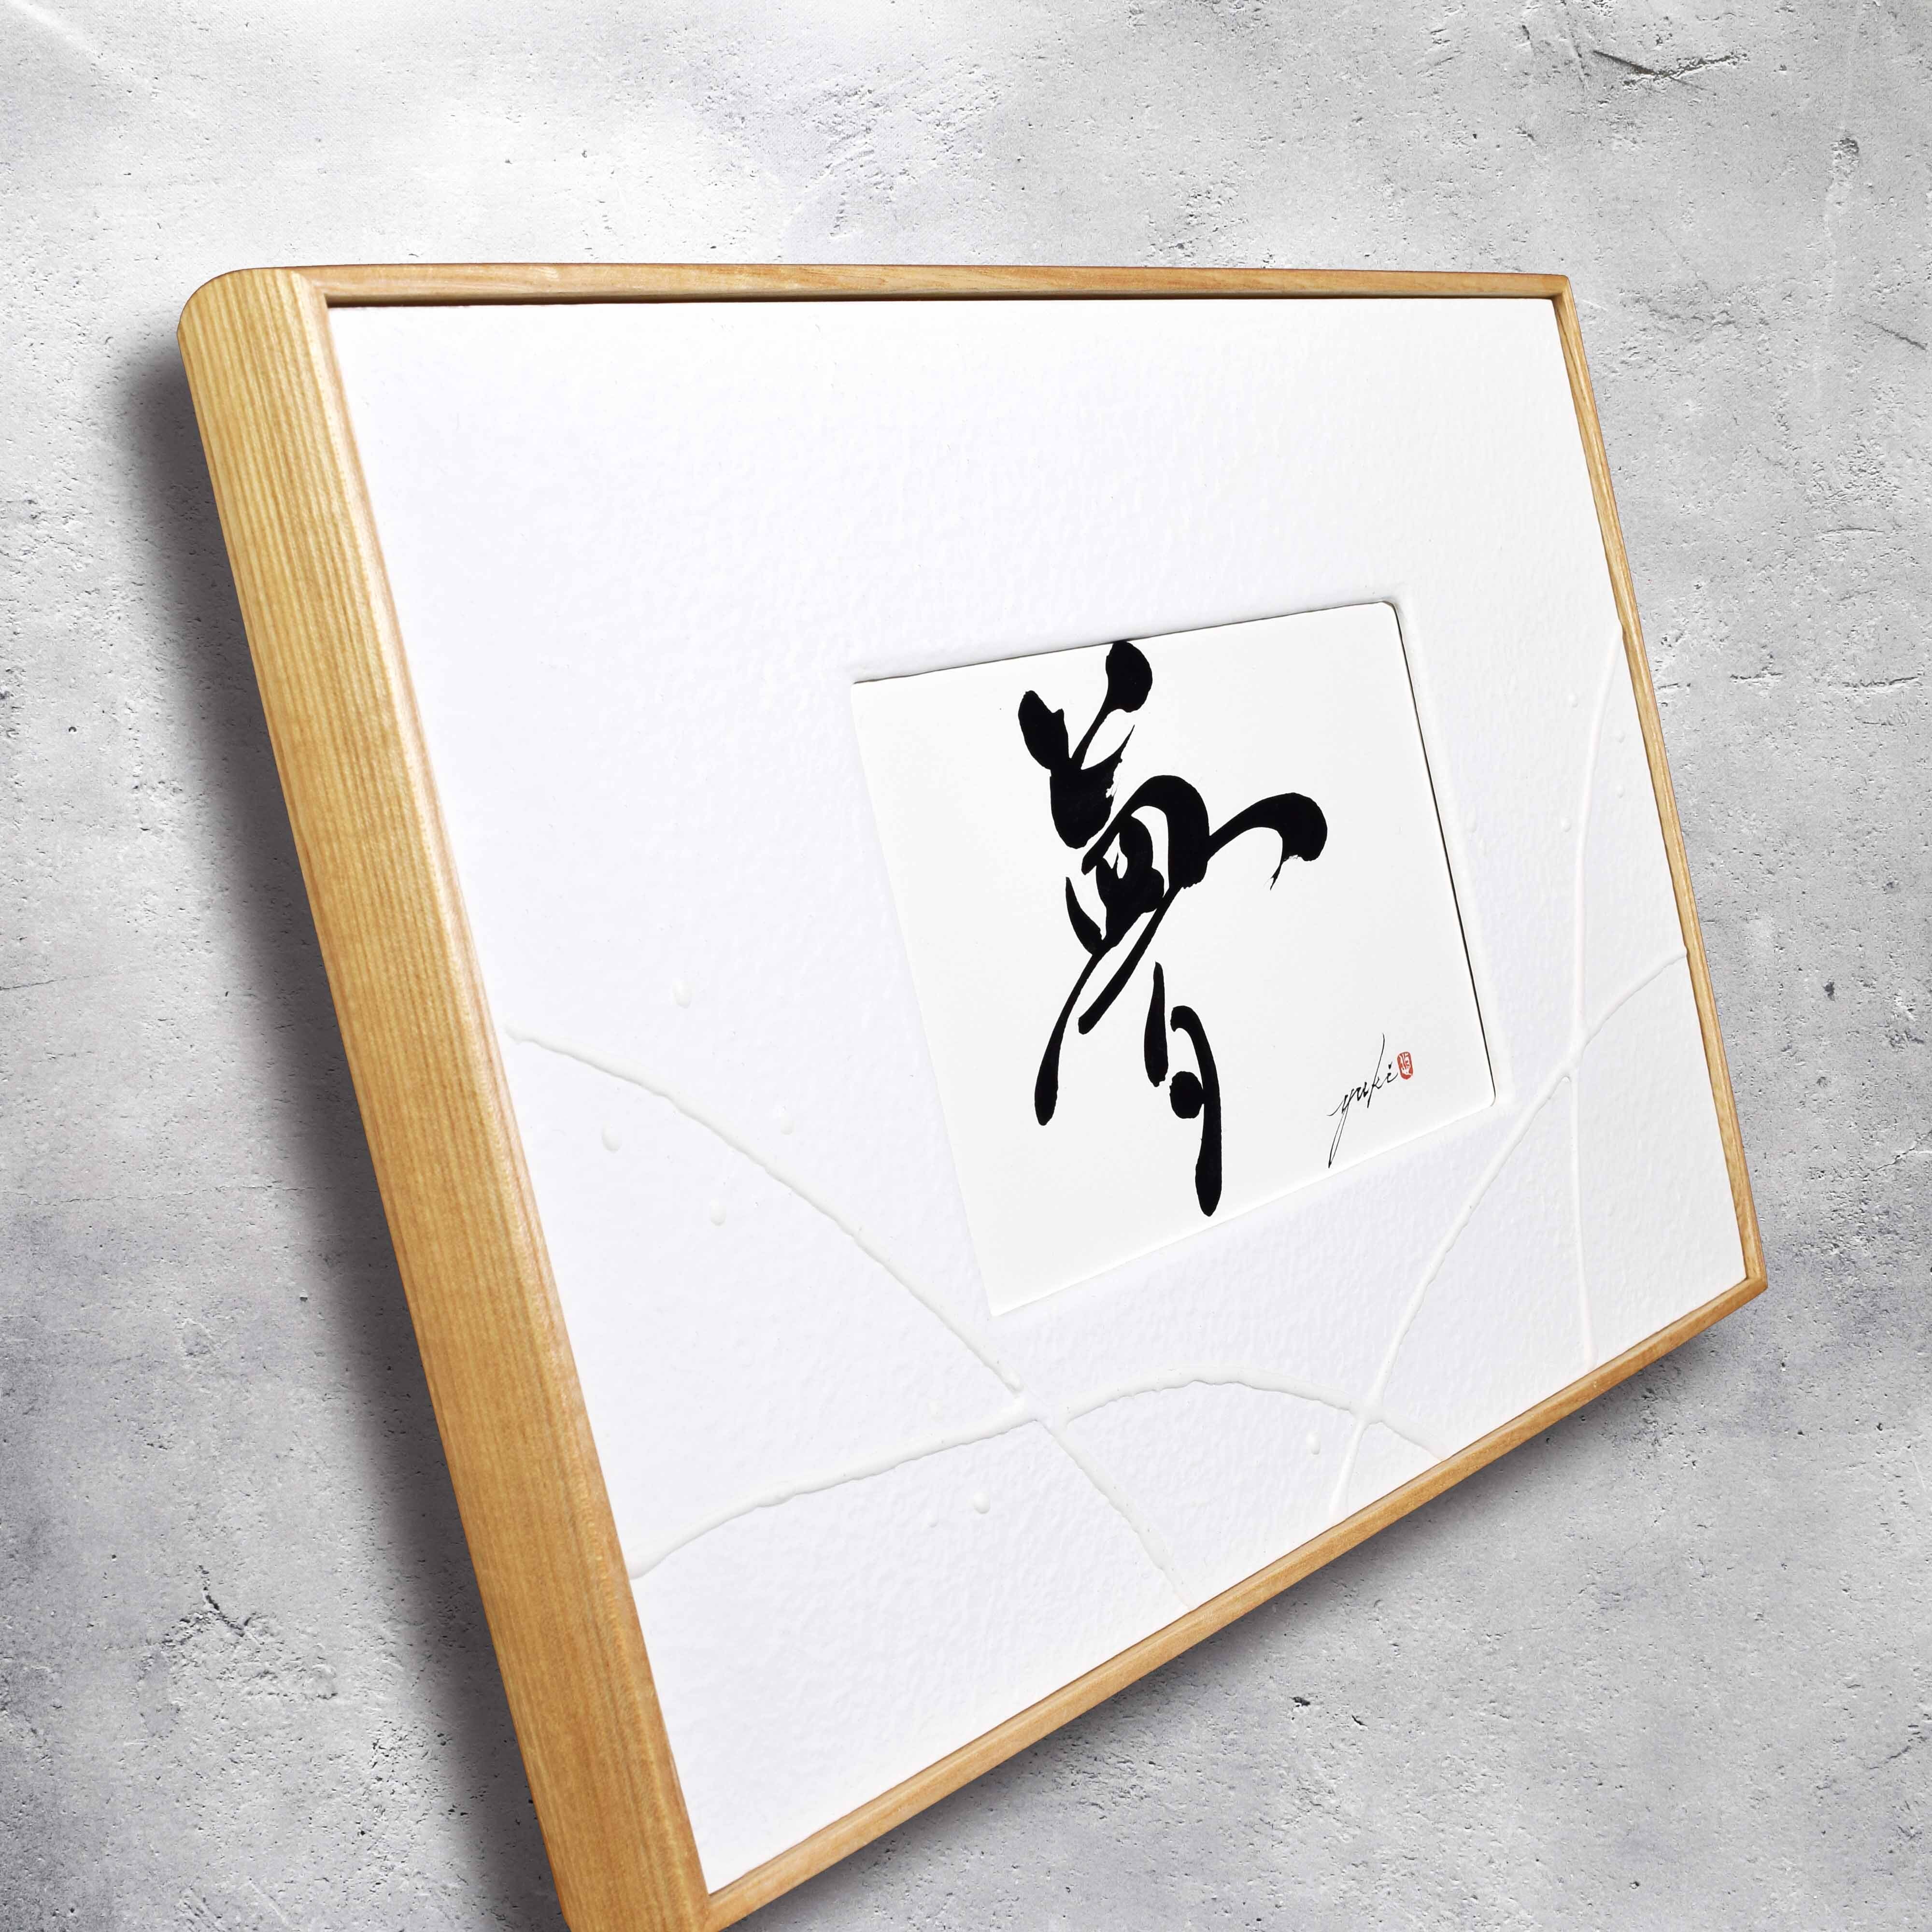 夢
yuki